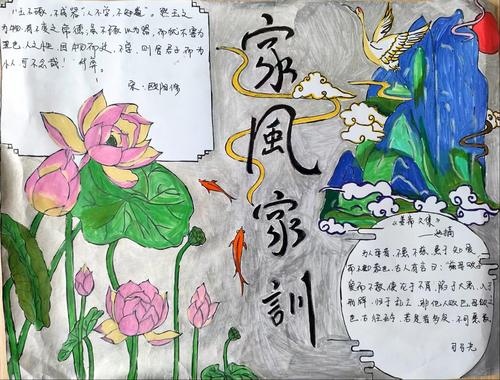 “玉不琢,不成器”人不学,不知道”。然玉之
为物,有不变之常德,虽不琢以为器,而犹不害为
玉也。人之性,因物则迁,不学,则舍君子而为
小人,可不念哉!
宋·欧阳修
家风家訓
文集》
为人母者,不患不慈,患于知爱
而不知教也。古人有言曰:“慈母败子”
爱而不教,使沦于不肖,陷于大恶,入于
刑辟,归于乱亡。非他人败之也,母败之
也。古往今,若是者多矣,不可悉数
司马光